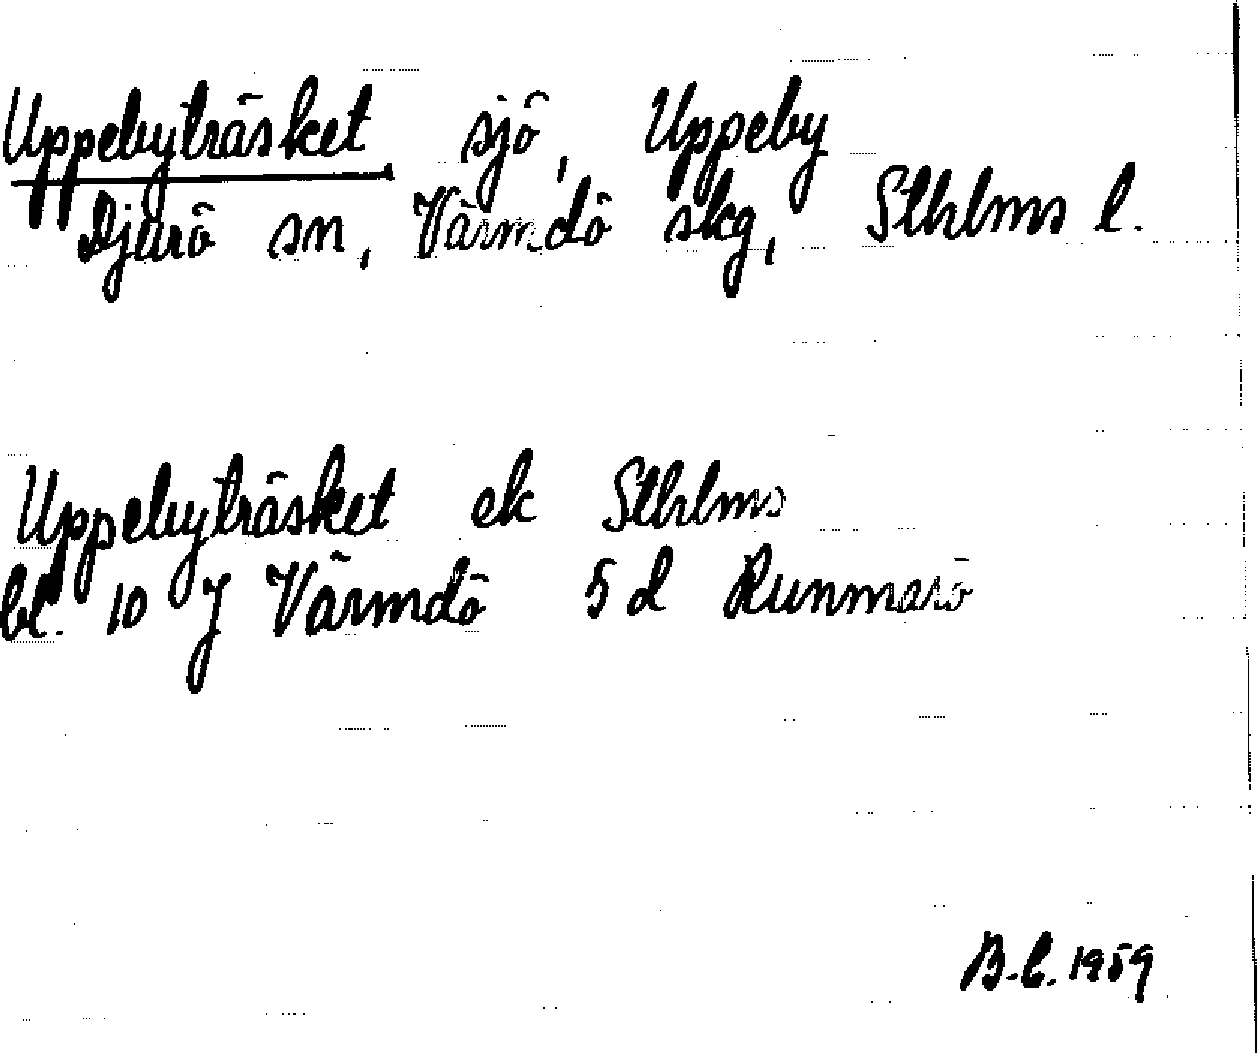 Uppebyträsket sjö, Uppeby
Djurö sn, Värmdö skg, Sthlms l.
Uppebyträsket ek Sthlms
bl. 10 J Värmdö 5 d Runmarö
B.C. 1959